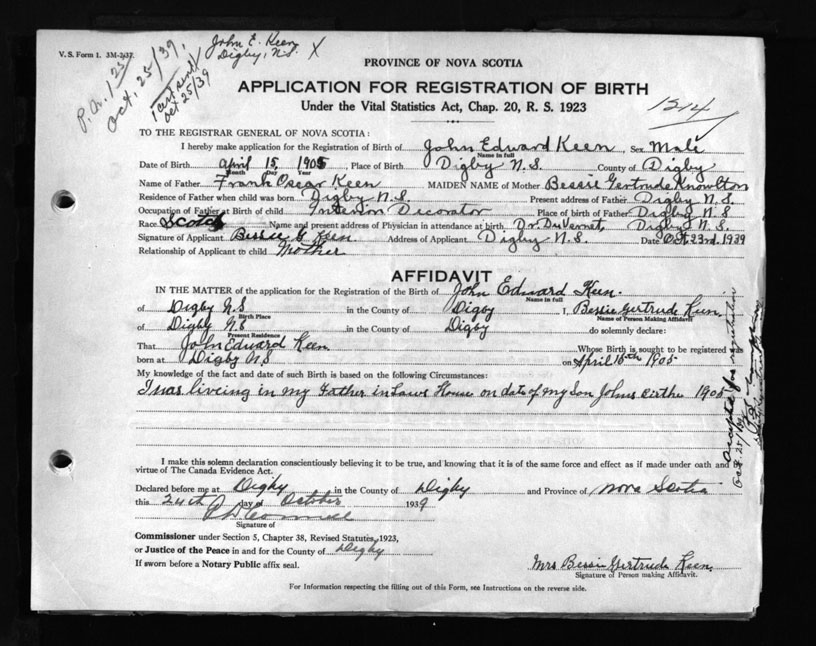 V. S. Form 1. 3M-2-37.
P.a. 125
Oct. 25/39.
John E. Keen X
Digby, N.S.
Oct 25/39
PROVINCE OF NOVA SCOTIA
APPLICATION FOR REGISTRATION OF BIRTH
Under the Vital Statistics Act, Chap. 20, R. S. 1923
1214
TO THE REGISTRAR GENERAL OF NOVA SCOTIA:
I hereby make application for the Registration of Birth of John Edward Keen, Sex Male
Name in full
Date of Birth April 15, 1905, Place of Birth Digby N.S. County of Digby
Month Day Year
Name of Father Frank Oscar Keen MAIDEN NAME of Mother Bessie Gertrude Knowlton
Residence of Father when child was born Digby N.S. Present address of Father Digby N.S
Occupation of Father at Birth of child Interior Decorator Place of birth of Father Digby N.S
Race Scotch Name and present address of Physician in attendance at birth Dr. DuVernet, Digby N.S.
Signature of Applicant Bessie G Keen Address of Applicant Digby N.S. Date Oct. 23rd. 1939
Relationship of Applicant to child Mother
AFFIDAVIT
IN THE MATTER of the application for the Registration of the Birth of John Edward Keen.
Name in full
of Digby N.S in the County of Digby I, Bessie Gertrude Keen
Birth Place Name of Person Making Affidavit
of Digby N.S in the County of Digby do solemnly declare:
Present Residence
That John Edward Keen Whose Birth is sought to be registered was
born at Digby N.S on April 15th 1905
My knowledge of the fact and date of such Birth is Based on the following Circumstances:
I was liveing in my Father in Laws House on date of my Son Johns Birthe 1905
I make this solemn declaration conscientiously believing it to be true, and knowing that it is of the same force and effect as if made under oath and by
virtue of The Canada Evidence Act.
Declared before me at Digby in the County of Digby and Province of Nova Scotia
this 24th day of October 1939
Signature of
Commissioner under Section 5, Chapter 38, Revised Statutes, 1923,
or Justice of the Peace in and for the County of Digby
If sworn before a Notary Public affix seal.
Mrs Bessie Gertrude Keen
Signature of Person making Affidavit.
For Information respecting the filling out of this Form, see Instructions on the reverse side.
Accepted for registration
Oct. 25/39